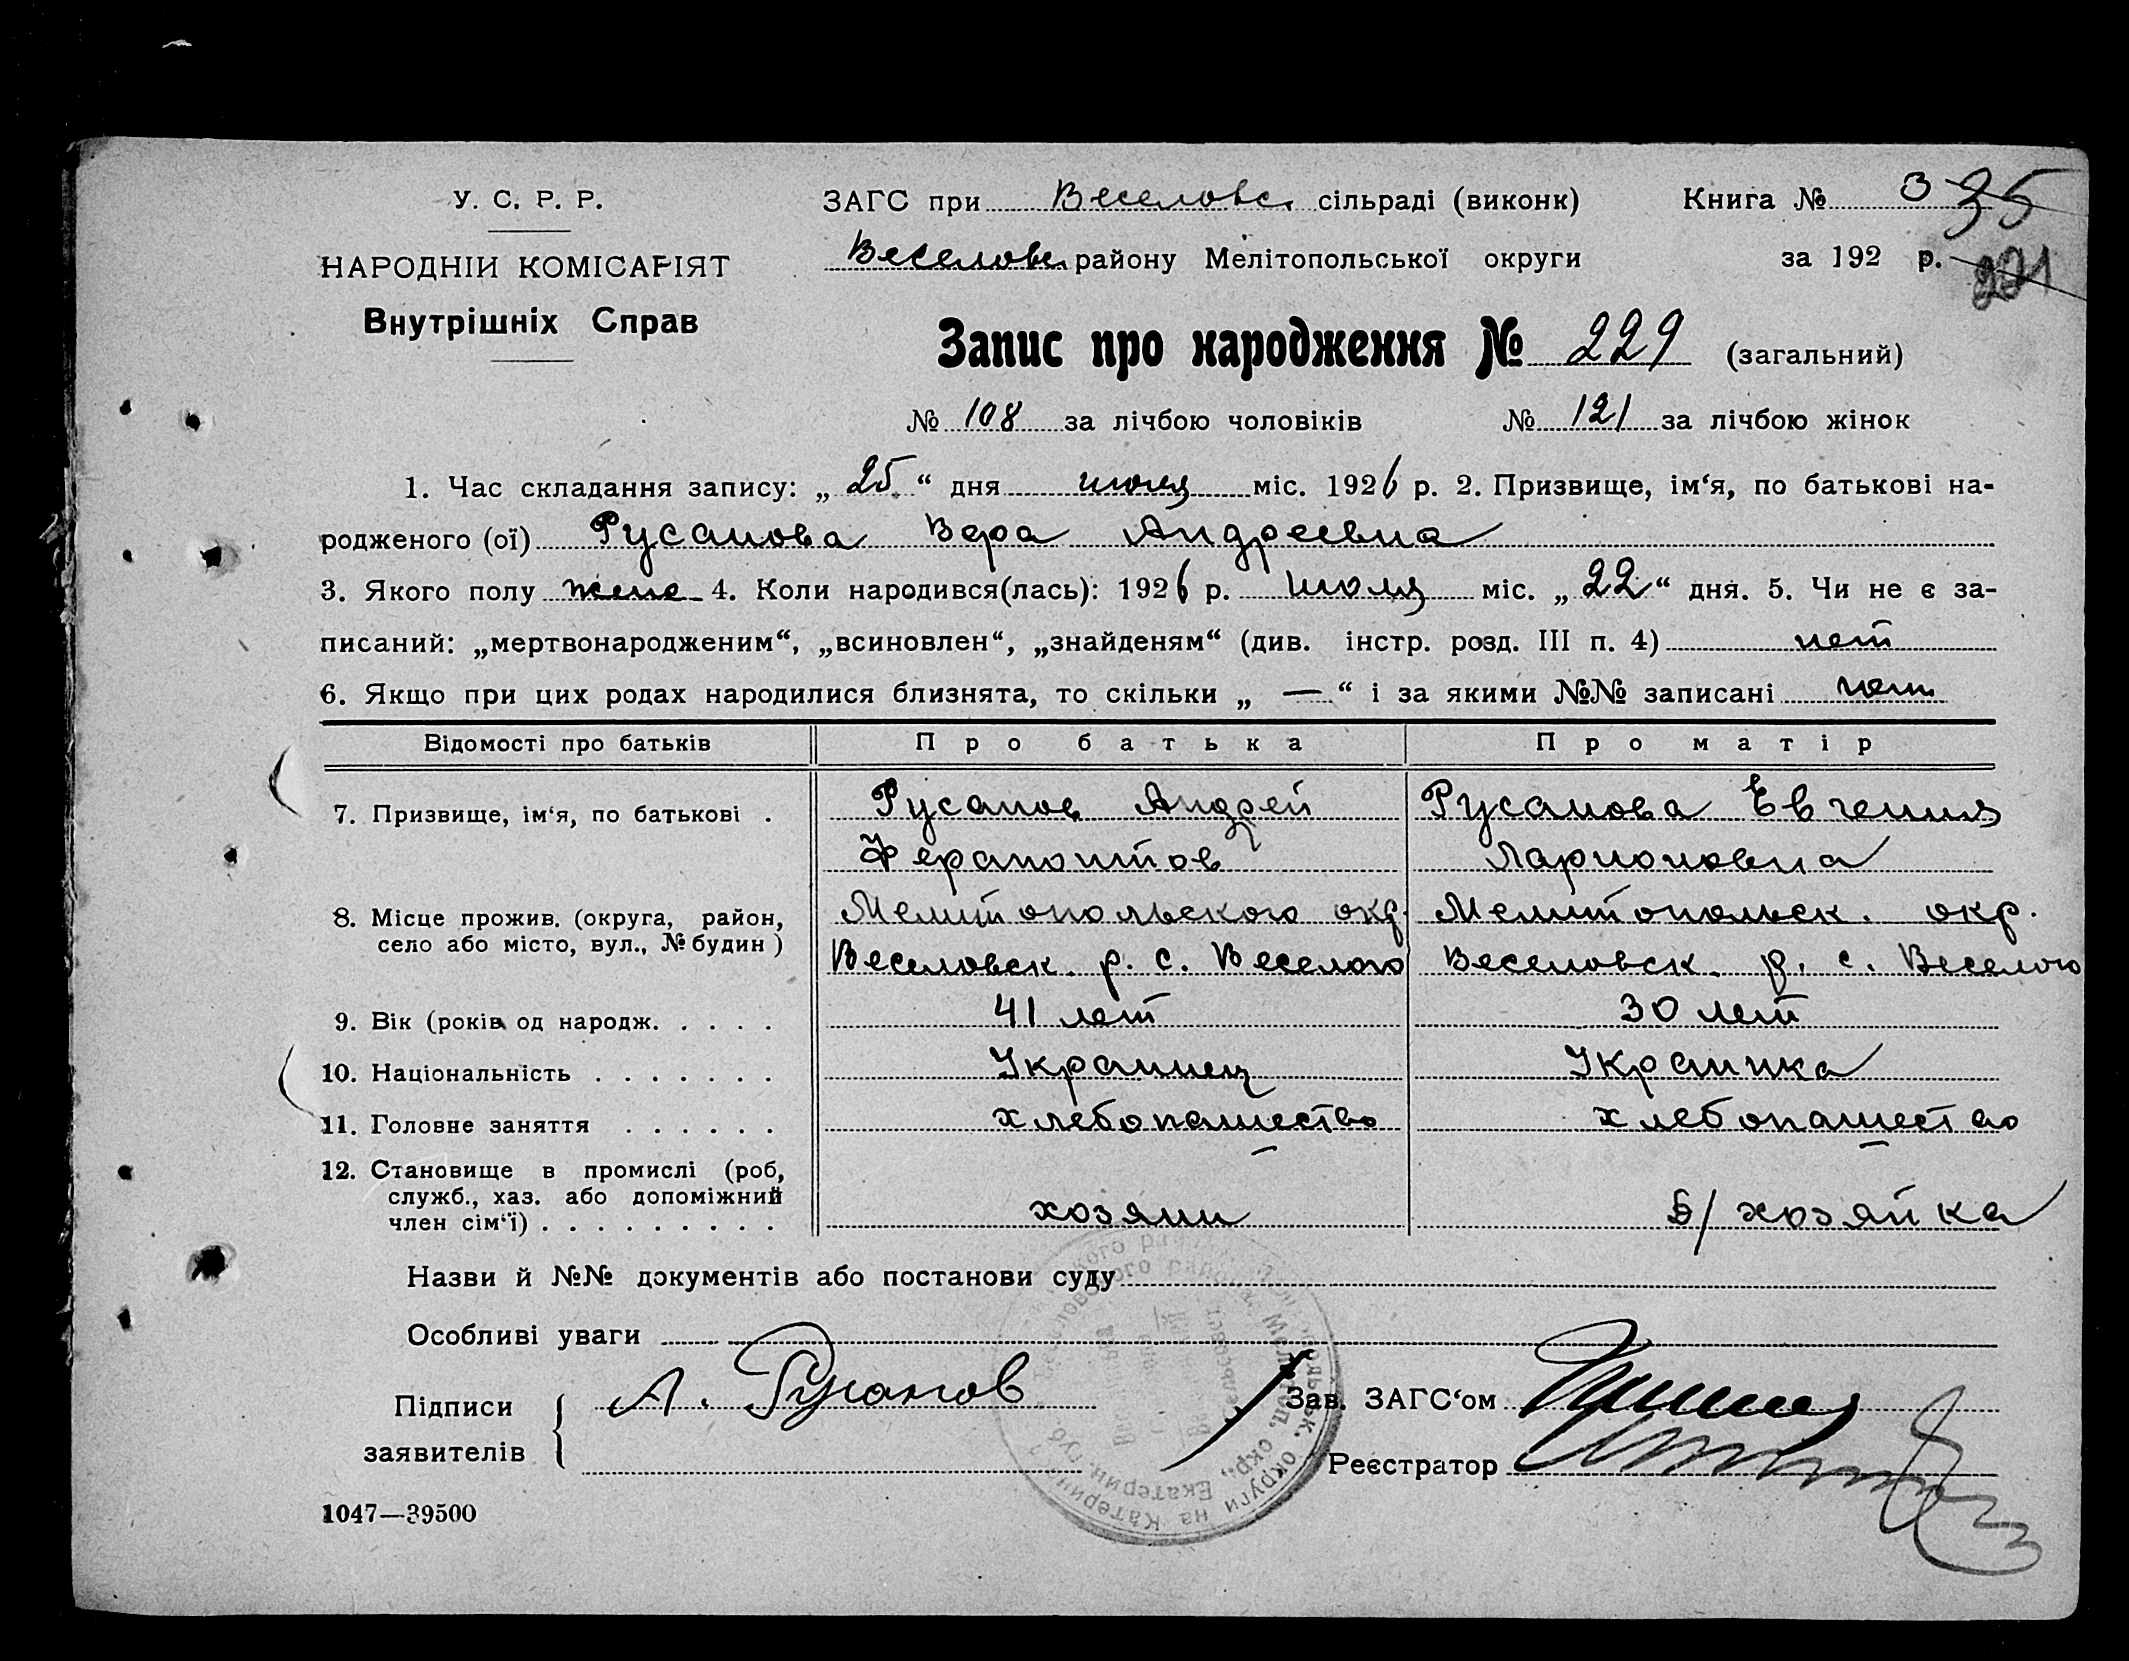 У. С. Р. Р.
ЗАГС при Веселовс. сільраді (виконк)
Книга № 3 35
НАРОДНІЙ КОМІСАРІЯТ
Веселовс. району Мелітопольської округи
за 192 р. 221
Внутрішніх Справ
Запис про народження № 229 (загальний)
№ 108 за лічбою чоловіків № 121 за лічбою жінок
1. Час складання запису: „ 25 “ дня июля міс. 1926 р. 2. Призвище, ім‘я, по батькові на-
родженого (ої) Русанова Вера Андреевна
3. Якого полу женс 4. Коли народився(лась): 1926 р. июля міс. „ 22 “ дня. 5. Чи не є за-
писаний: „мертвонародженим“, „всиновлен“, „знайденям“ (див. інстр. розд. III п. 4) нет
6. Якщо при цих родах народилися близнята, то скільки „ — “ і за якими №№ записані нет
Відомості про батьків
Про батька
Про матір
7. Призвище, ім‘я, по батькові .
Русанов Андрей
Ферапонтов
Русанова Евгения
Ларионовна
8. Місце прожив. (округа, район,
село або місто, вул., № будин )
Мелитопольского окр.
Веселовск. р. с. Веселого
Мелитопольск. окр.
Веселовск. р. с. Веселого
9. Вік (років од народж. . . . .
41 лет
30 лет
10. Національність . . . . . . .
Украинец
Украинка
11. Головне заняття . . . . . .
хлебопашество
хлебопашество
12. Становище в промислі (роб,
служб., хаз. або допоміжний
член сім‘ї) . . . . . . . . .
хозяин
д/хозяйка
Назви й №№ документів або постанови суду
Особливі уваги
Підписи
заявителів
А. Русанов
Зав. ЗАГС‘ом
Реєстратор
1047—39500